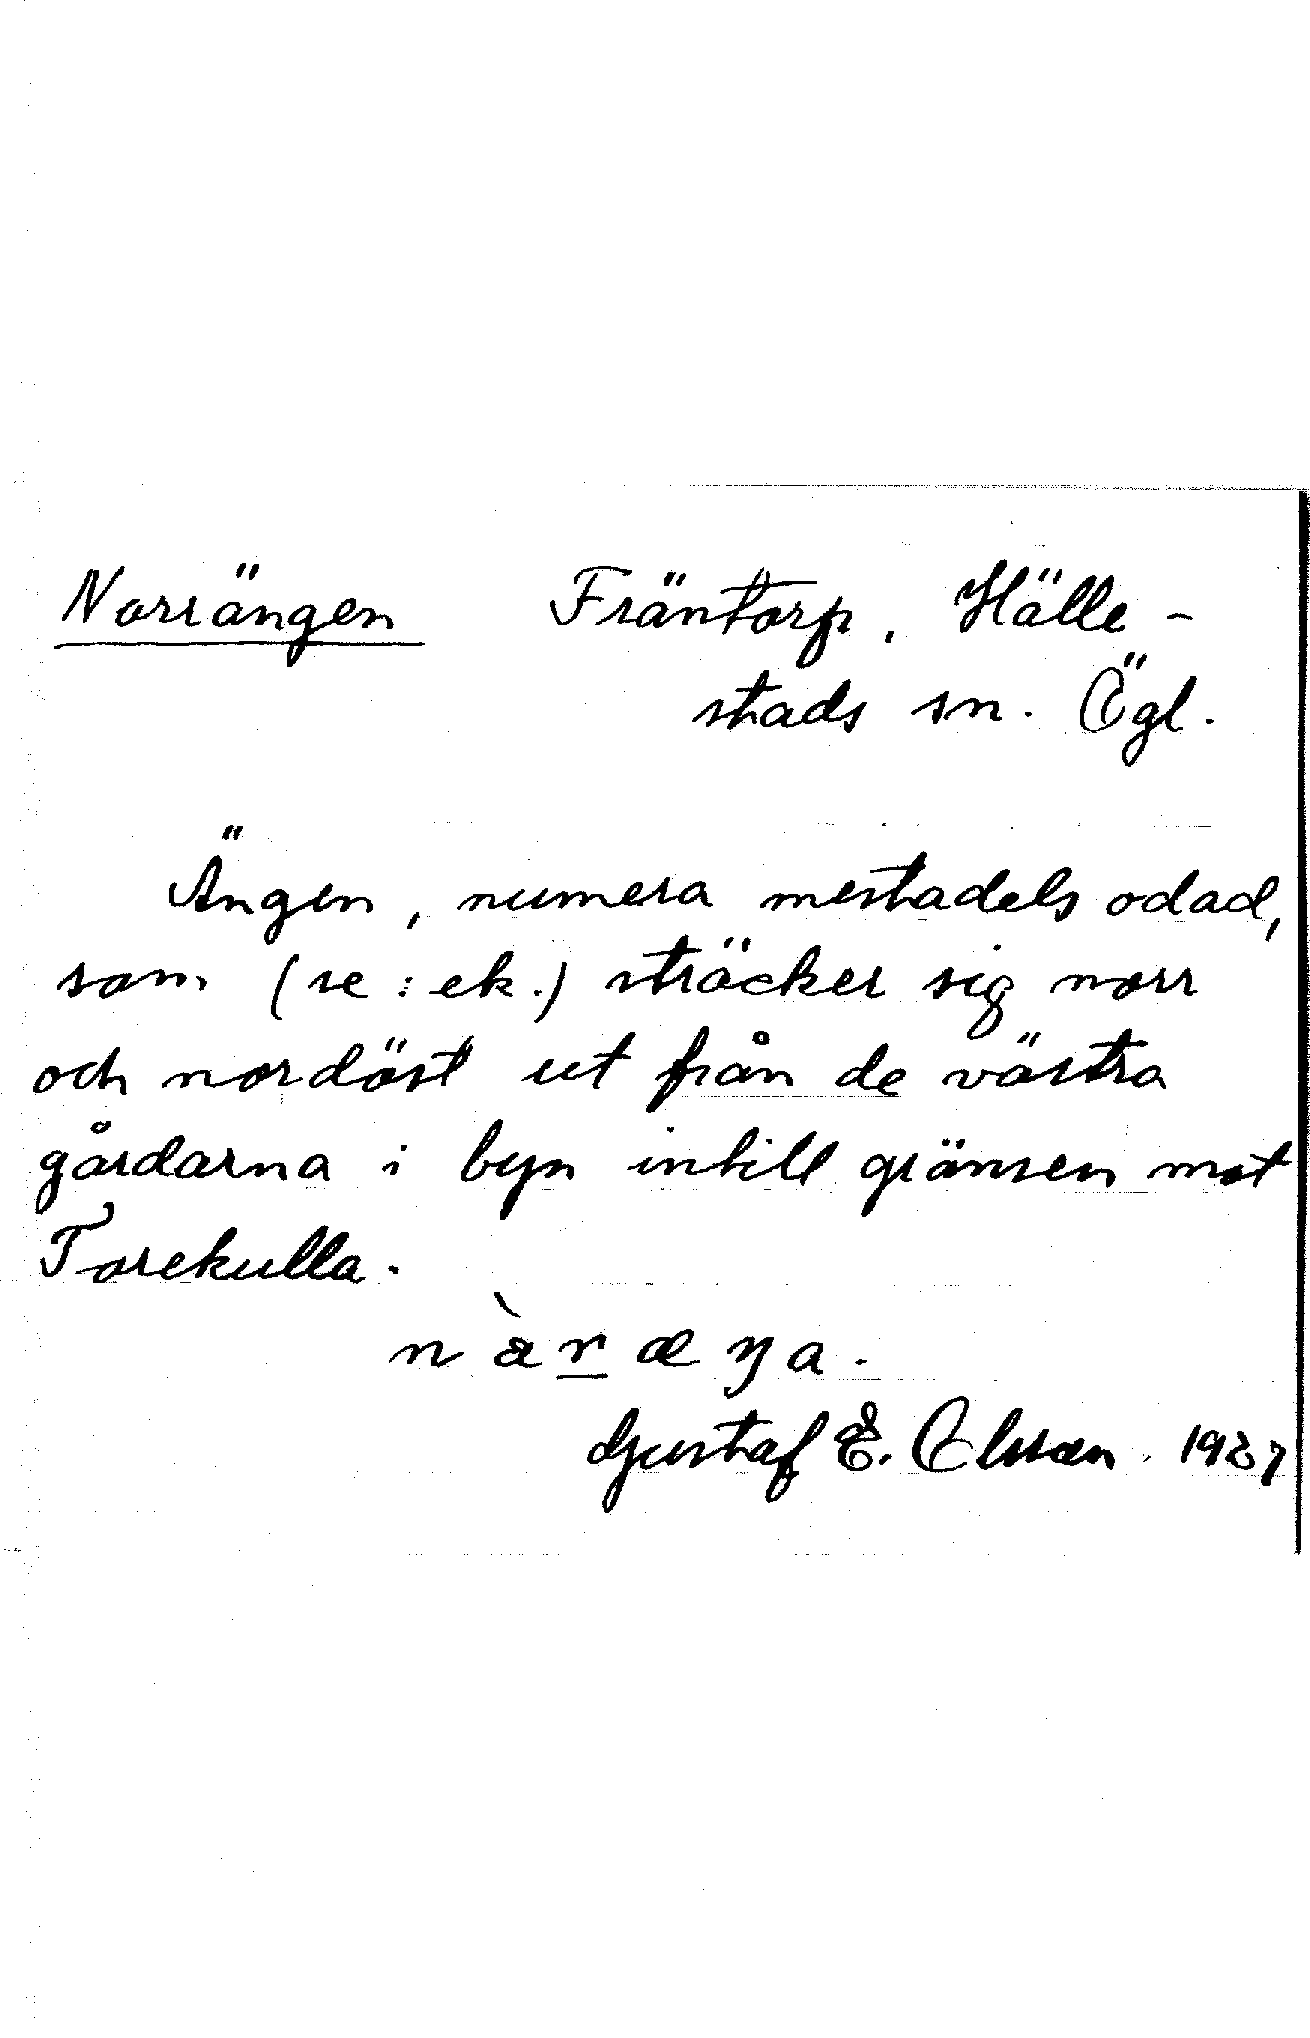 Norrängen Fräntorp, Hälle-
stads sn. Ögl.
Ängen, numera mestadels odad,
som (se: ek.) sträcker sig norr
och nordöst ut från de västra
gårdarna i byn intill gränsen mot
Torekulla.
Gustaf E. Olsson. 1927